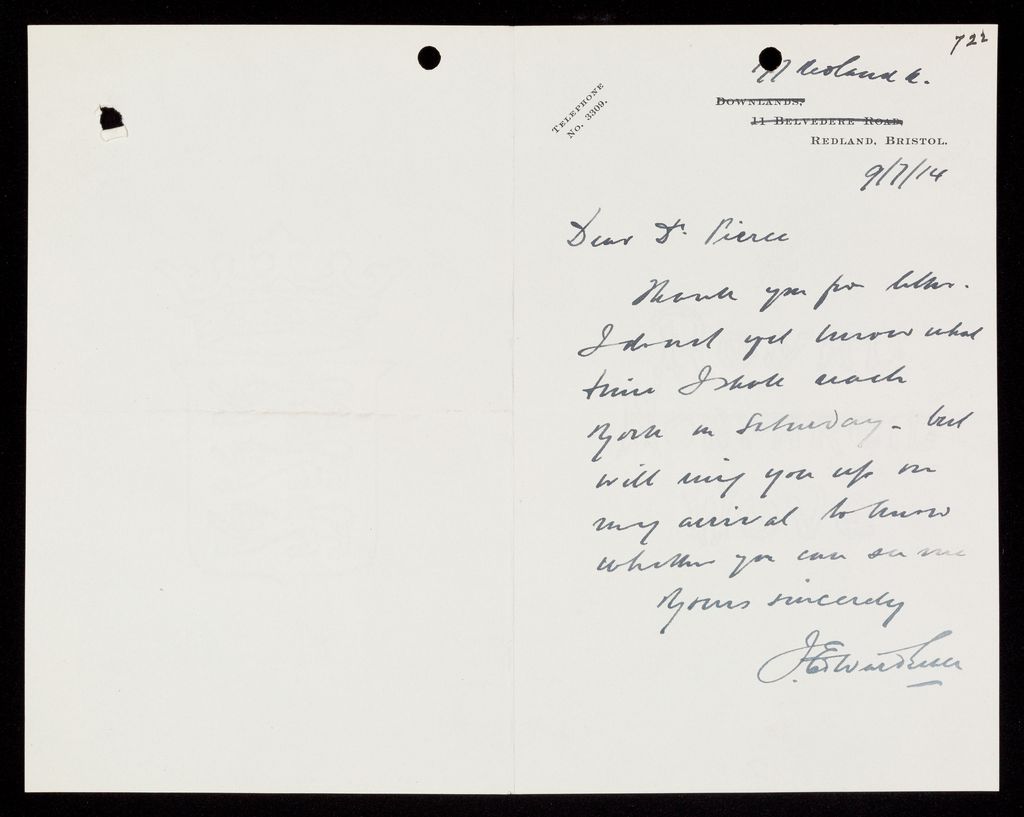 722
Redland
TELEPHONE
No. 3309.
DOWNLANDS,
11 BELVEDERE ROAD,
REDLAND, BRISTOL.
9/7/14
Dear Dr. Pierce
Thank you for letter.
I do not yet know what
time I shall reach
York on Saturday - but
will ring you up on
my arrival to know
whether you can see me
Yours sincerely
J. Edward